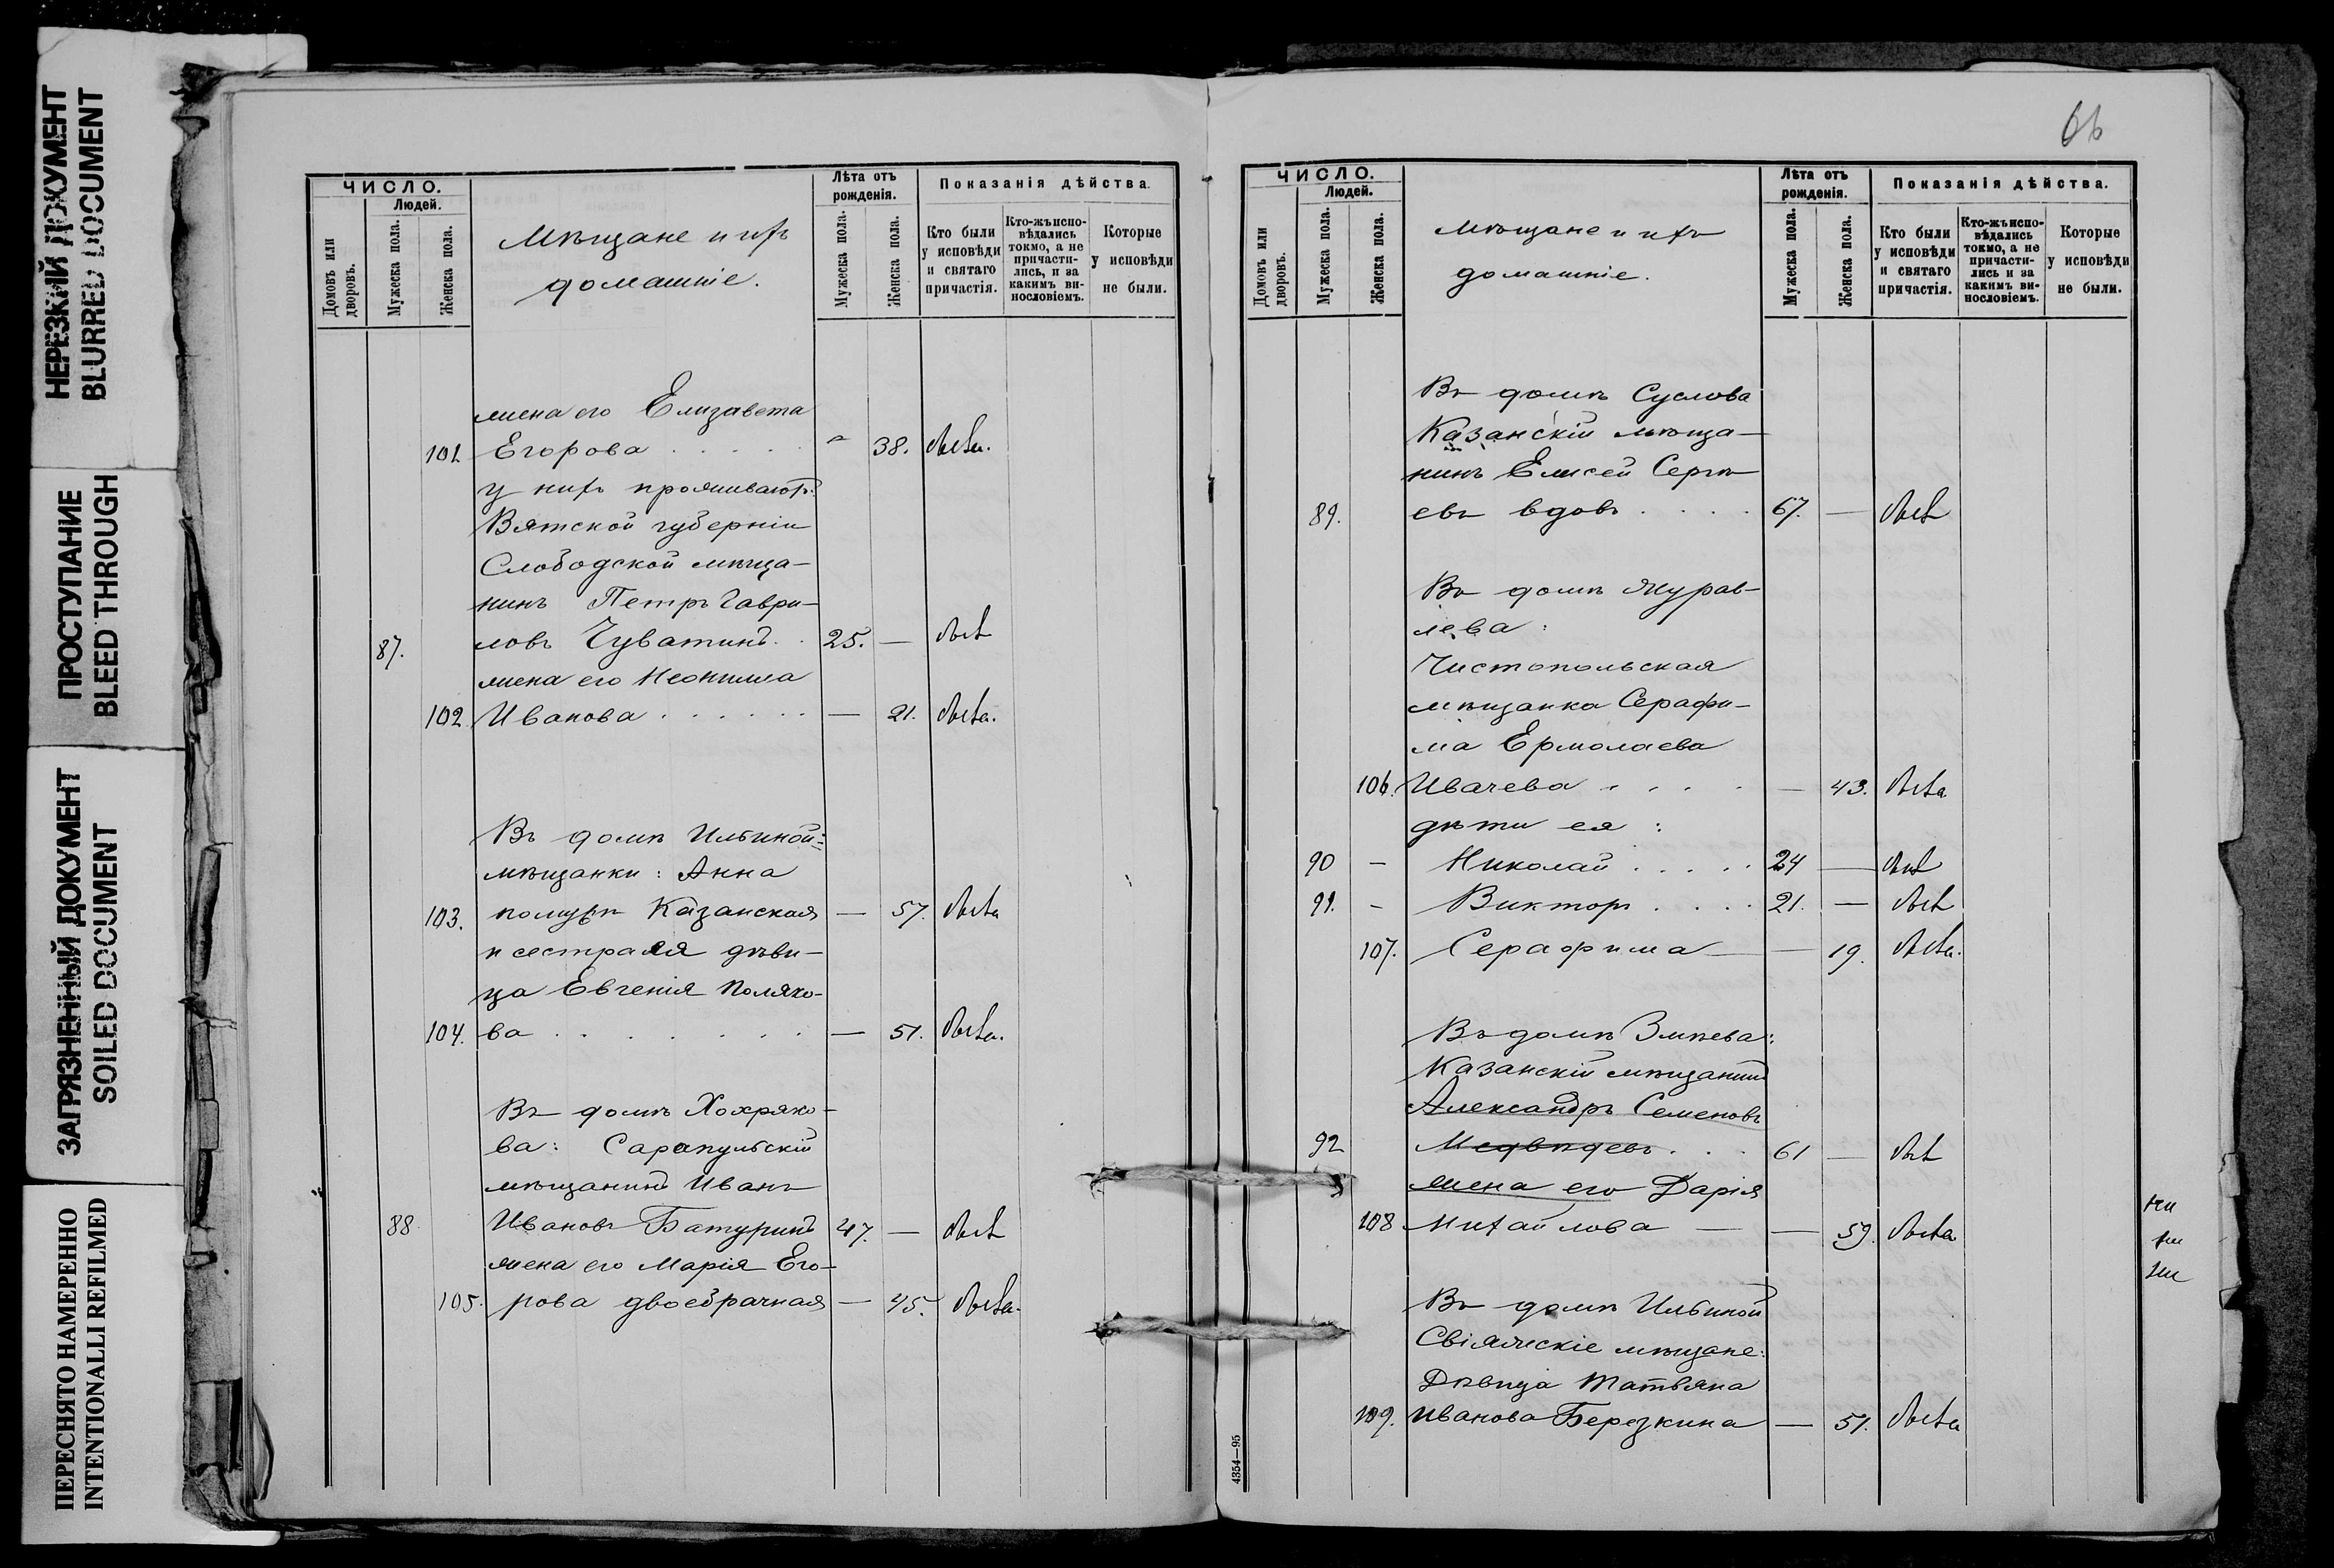 НЕРЕЗКИЙ ДОКУМЕНТ
BLURRED DOCUMENT
ПРОСТУПАНИЕ
BLEED THROUGH
ЗАГРЯЗНЕННЫЙ ДОКУМЕНТ
SOILED DOCUMENT
ПЕРЕСНЯТО НАМЕРЕННО
INTENTIONALLI REFILMED
ЧИСЛО.
Людей.
Домовъ или дворовъ.
Мужеска пола.
Женска пола.
Мѣщане и ихъ
домашніе.
Лѣта отъ
рожденія.
Мужеска пола.
Женска пола.
Показанія дѣйства.
Кто были
у исповѣди
и святаго
причастія.
Кто-жъ испо-
вѣдались
токмо, а не
причасти-
лись, и за
какимъ ви-
нословіемъ.
Которые
у исповѣди
не были.
жена его Елизавета
101 Егорова . . . . . 38. была.
у нихъ проживаютъ:
Вятской губерніи
Слободской мѣща-
нинъ Петръ Гаври-
87. ловъ Чуватинъ . . 25. — былъ
жена его Неонилла
102 Иванова . . . . . . — 21. была.
Въ домѣ Ильиной:
мѣщанки: Анна
103. Казанская — 57. была
и сестра ея дѣви-
ца Евгенія Поляко-
104. ва . . . . . . . — 51. была.
Въ домѣ Хохряко-
ва: Сарапульскій
мѣщанинъ Иванъ
88 Ивановъ Батуринъ 47. — былъ
жена его Марія Его-
105. рова двоебрачная — 45. была.
66
ЧИСЛО.
Людей.
Домовъ или дворовъ.
Мужеска пола.
Женска пола.
Мѣщане и ихъ
домашніе.
Лѣта отъ
рожденія.
Мужеска пола.
Женска пола.
Показанія дѣйства.
Кто были
у исповѣди
и святаго
причастія.
Кто-жъ испо-
вѣдались
токмо, а не
причасти-
лись и за
какимъ ви-
нословіемъ.
Которые
у исповѣди
не были.
Въ домѣ Суслова
Казанскій мѣща-
нинъ Елисей Сергѣ
89. евъ вдовъ . . . . 67. — былъ
Въ домѣ Журав-
лева:
Чистопольская
мѣщанка Серафи-
ма Ермолаева
106. Ивачева . . . . — 43. была
дѣти ея:
90 - Николай . . . . . 24 — былъ
91. - Викторъ . . . . 21. — былъ
107. Серафима — — 19. была.
Въ домѣ Змѣева:
Казанскій мѣщанинъ
Александръ Семеновъ
92 Медвѣдевъ . . . 61 — былъ
жена его Дарія
108 Михайлова — — 59. была
Въ домѣ Ильиной
Свіяжскіе мѣщане:
Дѣвица Татьяна
109. Иванова Березкина — 51. была
4354—95